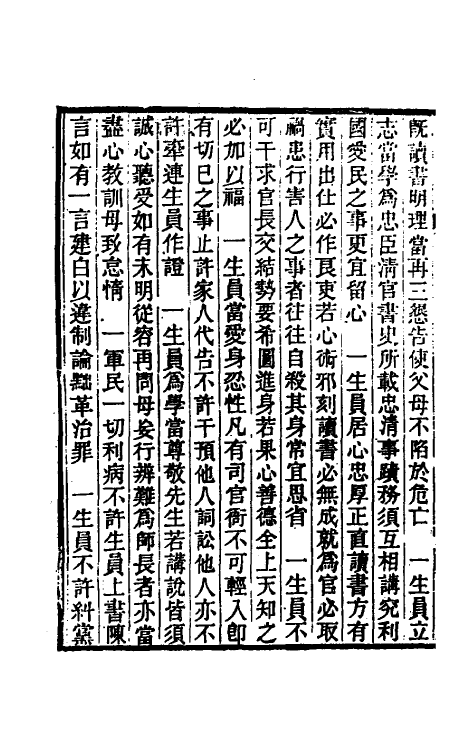 既讀書明理當再三懇告使父母不陷於危亡　一生員立
志當學爲忠臣清官書史所載忠清事蹟務須互相講究利
國愛民之事更宜留心　一生員居心忠厚正直讀書方有
實用出仕必作良吏若心術邪刻讀書必無成就爲官必取
禍患行害人之事者往往自殺其身常宜思省　一生員不
可干求官長交結勢要希圖進身若果心善德全上天知之
必加以福　一生員當愛身忍性凡有司官衙不可輕入卽
有切已之事止許家人代告不許干預他人詞訟他人亦不
許牽連生員作證　一生員爲學當尊敬先生若講說皆須
誠心聽受如有未明從容再問毋妄行辨難爲師長者亦當
盡心教訓毋致怠惰　一軍民一切利病不許生員上書陳
言如有一言建白以違制論黜革治罪　一生員不許糾黨